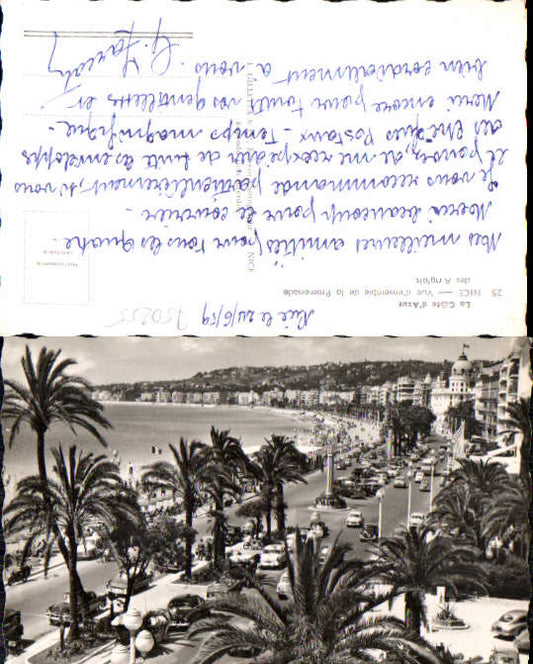 La Côte d'Azur
25 NICE — Vue d'ensemble de la Promenade
des Anglais
Nice le 24/6/59
750255
Mes meilleures amitiés pour tous les quatre.
Merci beaucoup pour le courrier.
Je vous recommande particulièrement, si vous
le pouvez, de me réexpédier de suite les enveloppes
des chèques Postaux - Temps magnifique -
Merci encore pour toutes vos gentillesses et
bien cordialement à vous.